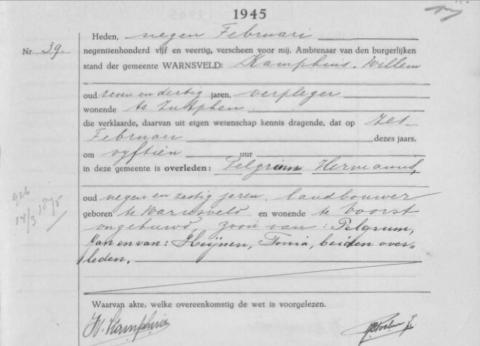 1945
Nr 39.
Heden, negen Februari
negentienhonderd vijf en veertig, verscheen voor mij, Ambtenaar van den burgerlijken
stand der gemeente WARNSVELD: Kamphuis, Willem
oud en dertig jaren, verpleger
wonende te Zutphen
die verklaarde, daarvan uit eigen wetenschap kennis dragende, dat op zes
Februari dezes jaars,
om vyftien uur
in deze gemeente is overleden: Pelgrum Hermanus,
oud negen en zestig jaren, landbouwer
geboren te Warnsveld en wonende te Voorst
ongehuwd, zoon van: Pelgrum,
en van: Heijnen, beiden over-
leden.
Waarvan akte, welke overeenkomstig de wet is voorgelezen.
W. Kamphuis